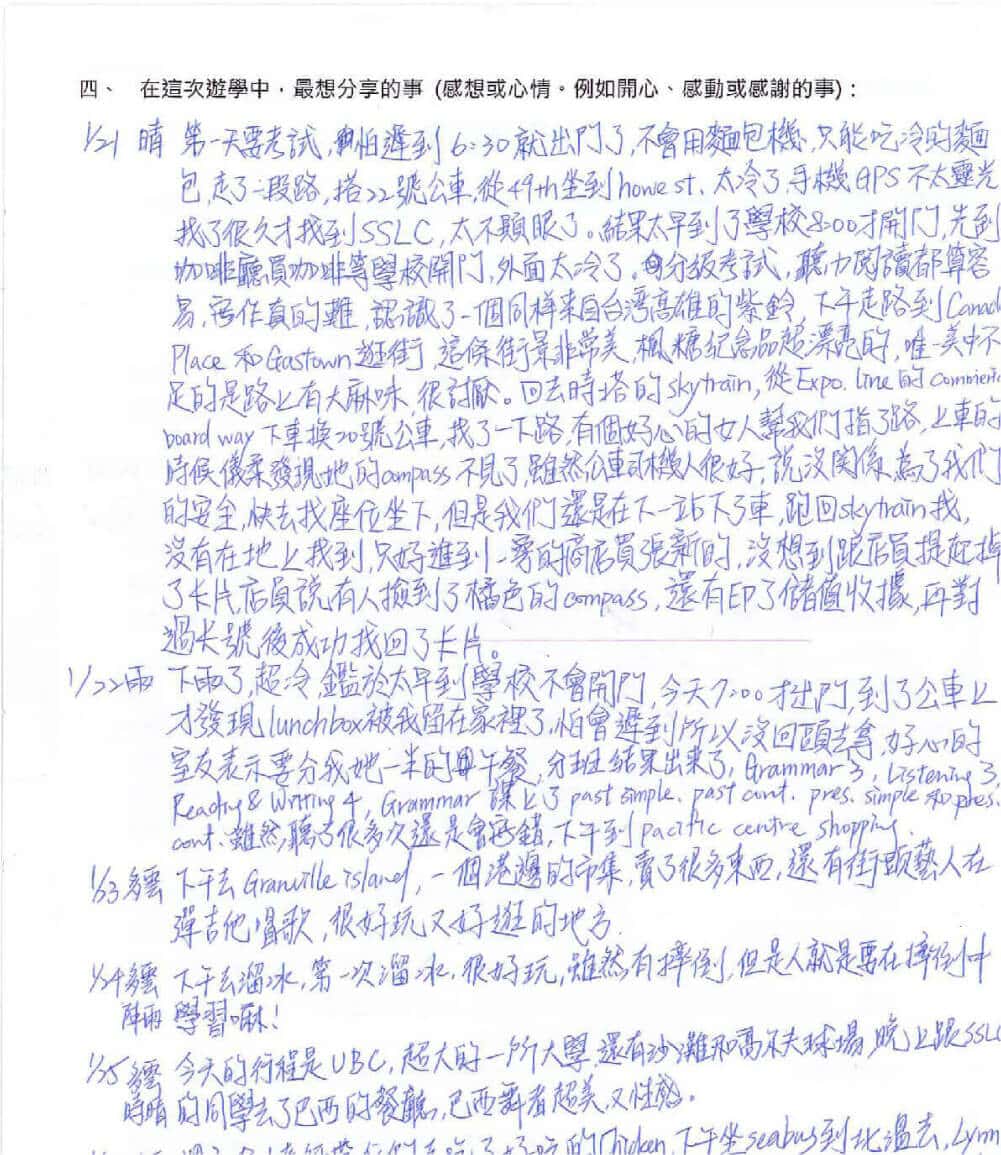 四、 在這次遊學中，最想分享的事 (感想或心情。例如開心、感動或感謝的事)：
1/21 晴 第一天要考試，怕遲到6:30就出門了，不會用麵包機，只能吃冷的麵
包，走了一段路，搭22號公車，從49th坐到howe st，太冷了手機GPS不太靈光
找了很久才找到SSLC，太不顯眼了。結果太早到了學校8:00才開門，先到
咖啡廳買咖啡等學校開門，外面太冷了。分級考試，聽力閱讀都算容
易，寫作真的難，認識了一個同样来自台湾高雄的紫鈴，下午走路到Canad
Place 和Gastown逛街，這條街景非常美，楓糖紀念品超漂亮的，唯一美中不
足的是路上有大麻味，很討厭。回去時搭的skytrain，從Expo. line的 commerci
board way下車換20號公車，找了一下路，有個好心的女人幫我們指了路，上車的
時候儀柔發現她的compass不見了，雖然公車司機人很好，說沒關係，為了我們
的安全，快去找座位坐下，但是我們還是在下一站下了車，跑回skytrain找，
沒有在地上找到，只好進到一旁的商店買張新的，沒想到跟店員提起掉
了卡片，店員說有人撿到了橘色的compass，還有印了儲值收據，再對
過卡號後成功找回了卡片。
1/22雨 下雨了，超冷，鑑於太早到學校不會開門，今天7:00才出門，到了公車上
才發現lunchbox被我留在家裡了，怕會遲到所以沒回頭去拿，好心的
室友表示要分我她一半的午餐，分班結果出來了，Grammar 3, Listening 3,
Reading & Writing 4, Grammar 課上了past simple. past cont. pres. simple 和pres.
cont. 雖然聽了很多次還是會寫錯，下午到pacific centre shopping.
1/23多雲 下午去Granville island，一個港邊的市集，賣了很多東西，還有街頭藝人在
彈吉他唱歌，很好玩又好逛的地方.
1/24多雲 下午去溜冰，第一次溜冰，很好玩，雖然有摔倒，但是人就是要在摔倒中
陣雨 學習嘛！
1/25多雲 今天的行程是UBC，超大的一所大學，還有沙灘和高尔夫球場，晚上跟SSLC
時晴 的同學去了巴西的餐廳，巴西舞者超美又性感。
吃了好吃的Chicken，下午坐seabus到北溫去，Lynn